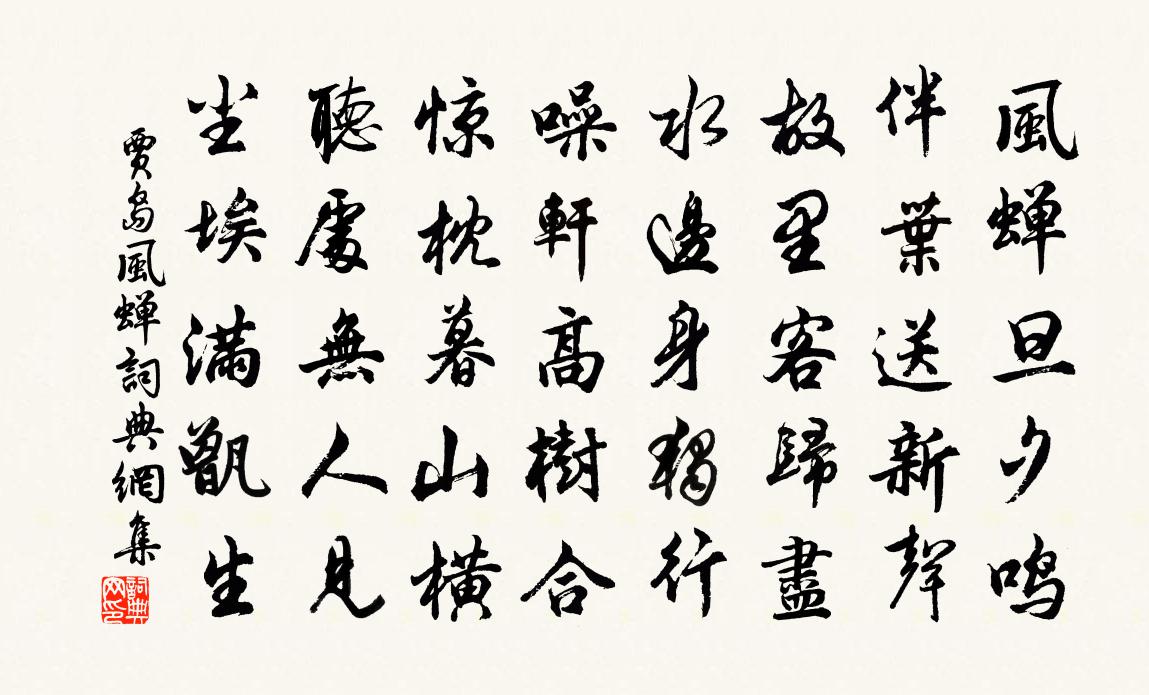 風蝉旦夕鸣
伴葉送新聲
故里客歸盡
水邊身獨行
噪軒高樹合
惊枕暮山橫
聽處無人見
尘埃滿甑生
賈島風蝉詞典網集
詞典网印